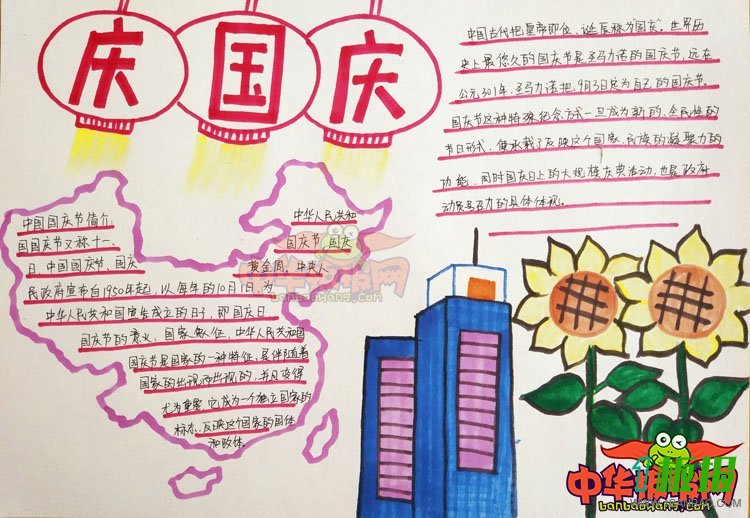 庆国庆
中国古代把皇帝即位、诞辰称为"国庆"。世界历
史上最悠久的国庆节是圣马力诺的国庆节,远在
公元301年,圣马力诺把9月3日定为自己的国庆节。
国庆节这种特殊纪念方式一旦成为新的、全民性的
节日形式,便承载了反映这个国家、民族的凝聚力的
功能,同时国庆日上的大规模庆典活动,也是政府
动员号召力的具体体现。
中国国庆节简介:
中华人民共和
国国庆节又称十一、
国庆节、国庆
日、中国国庆节、国庆
黄金周。中央人
民政府宣布自1950年起,以每年的10月1日,为
中华人民共和国宣告成立的日子,即国庆日
国庆节的意义、国家象征,中华人民共和国
国庆节是国家的一种特征,是伴随着
国家的出现而出现的,并且变得
尤为重要,它成为一个独立国家的
标志,反映这个国家的国体
和政体
中华板报网
banbaowang.com
趣报
中华板报网
banbaowang.com